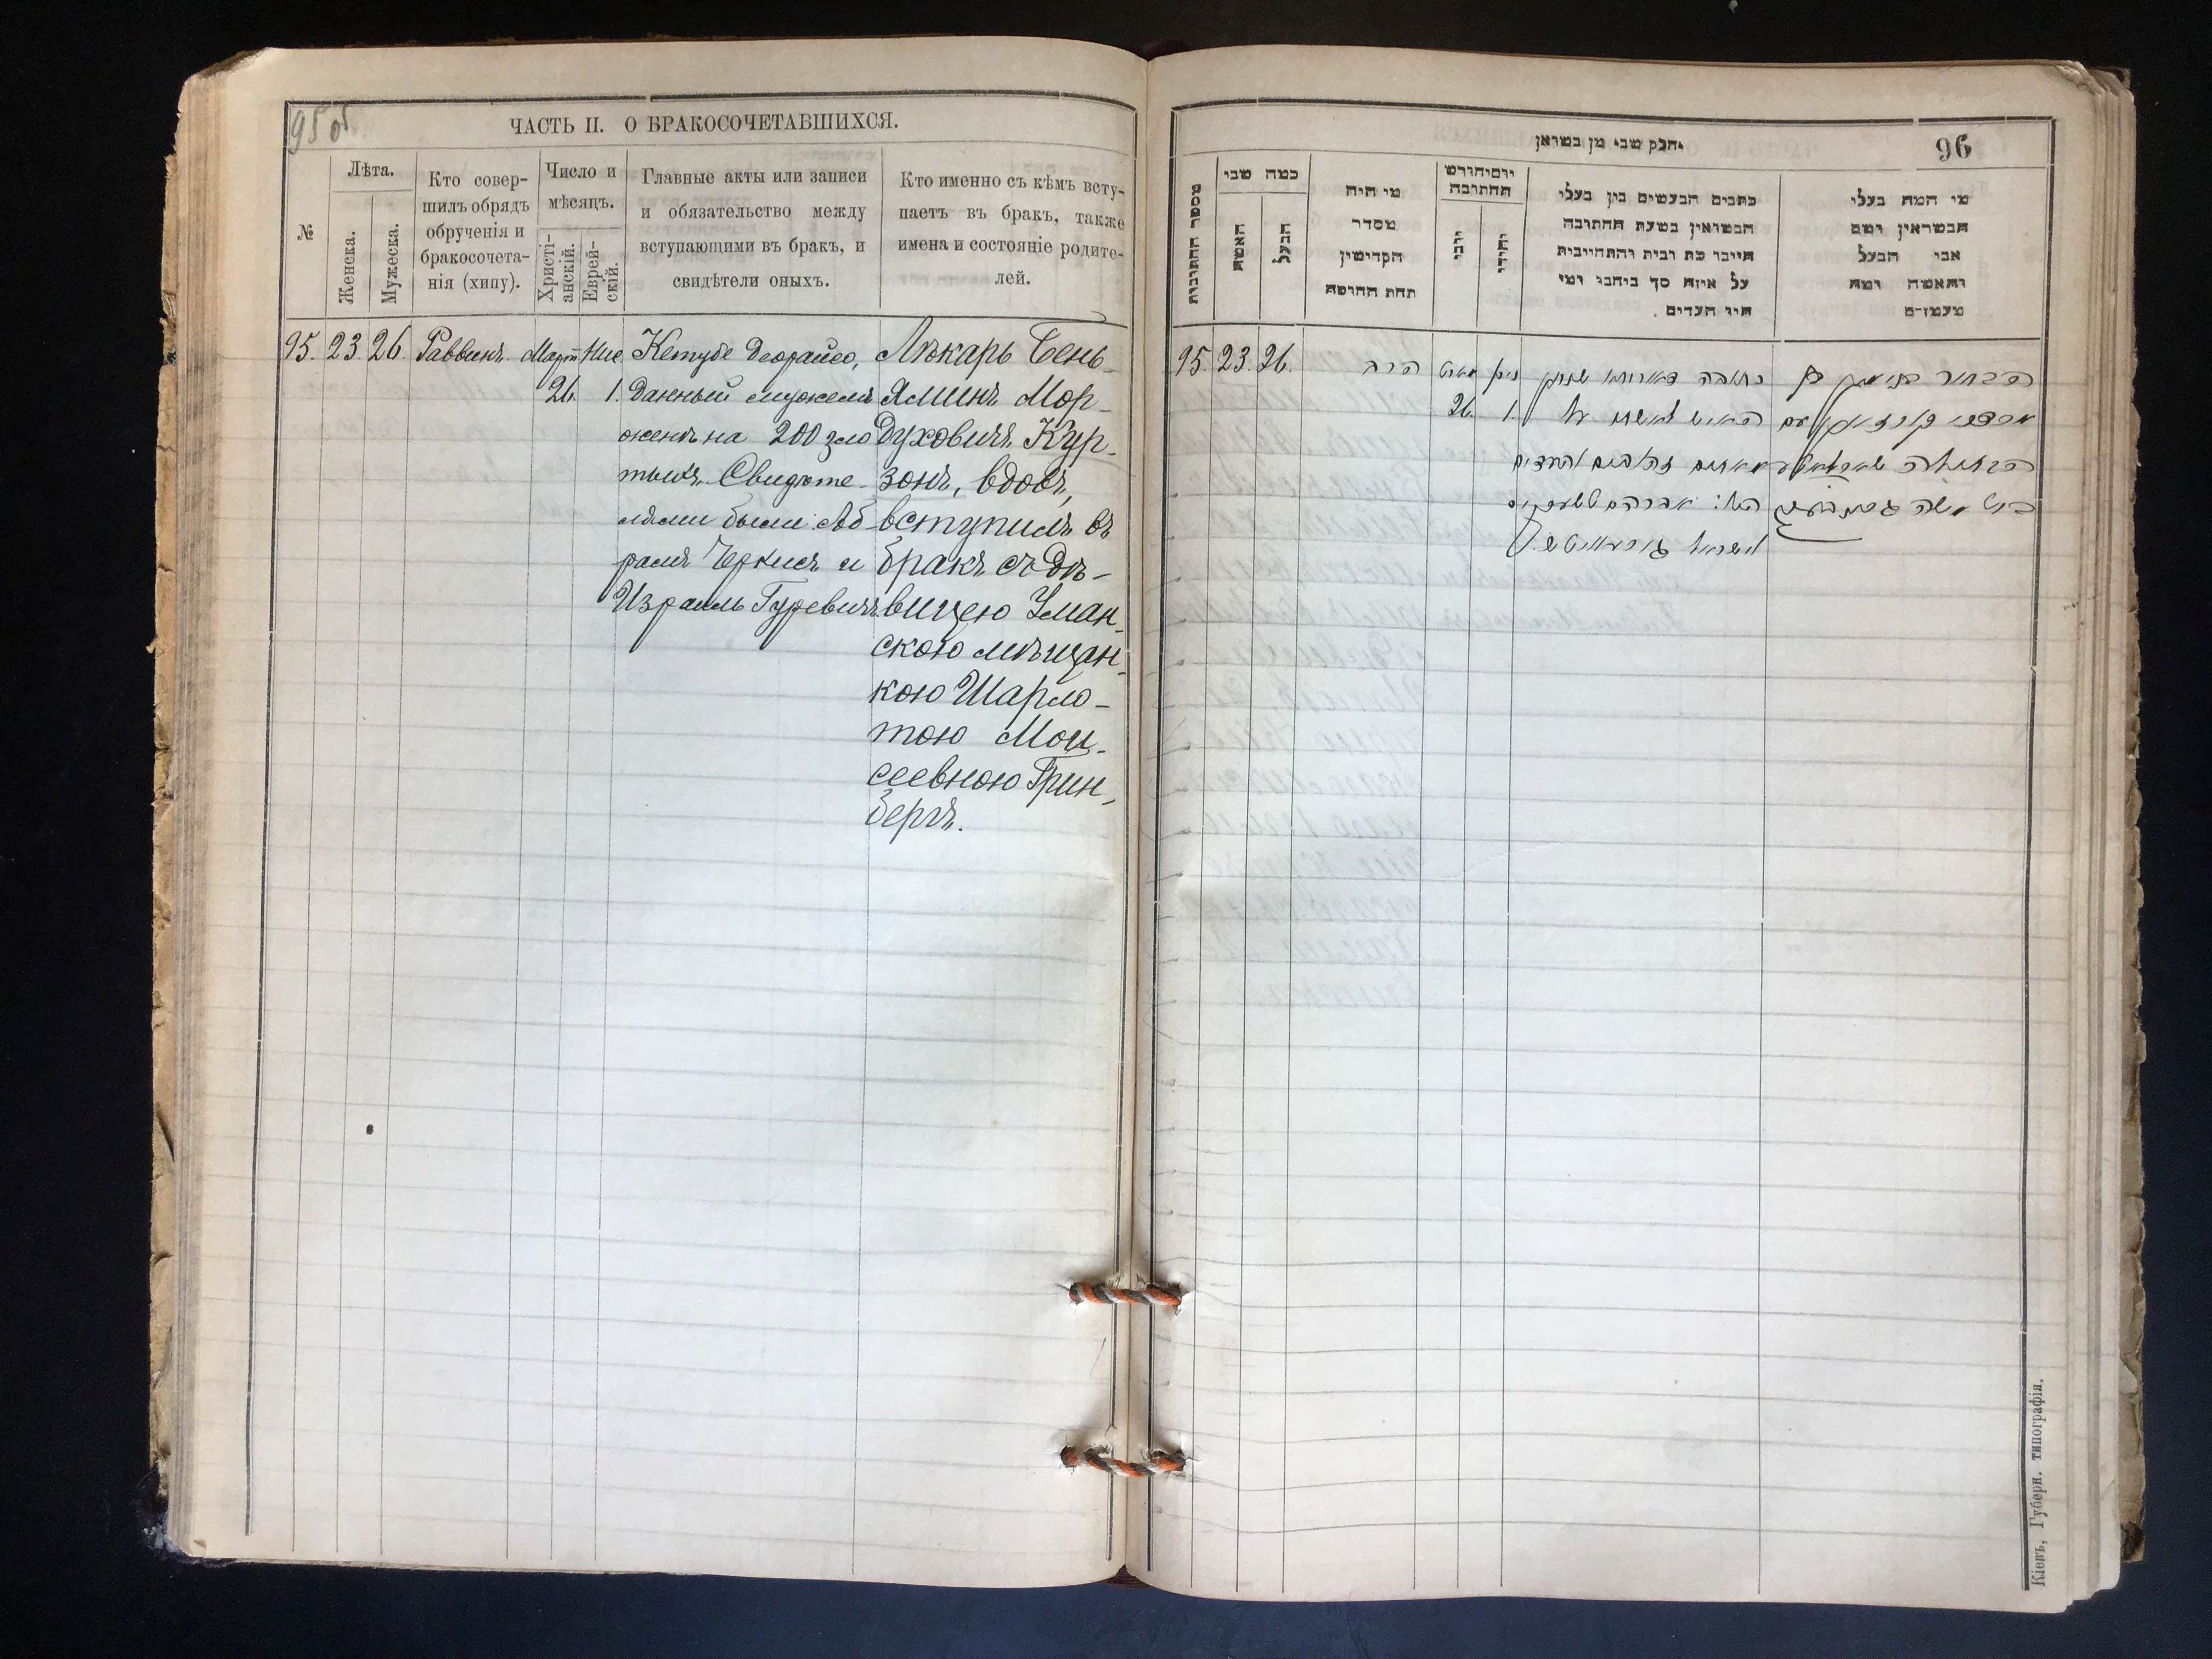 95 об.
ЧАСТЬ II. О БРАКОСОЧЕТАВШИХСЯ.
№
Лѣта.
Женска.
Мужеска.
Кто совер-
шилъ обрядъ
обрученія и
бракосочета-
нія (хипу).
Число и
мѣсяцъ.
Христі-
анскій.
Еврей-
скій.
Главные акты или записи
и обязательство между
вступающими въ бракъ, и
свидѣтели оныхъ.
Кто именно съ кѣмъ всту-
паетъ въ бракъ, также
имена и состояніе родите-
лей.
95. 23. 26. Раввинъ. Мартъ Нис.
26. 1.
Кетубе деорайсо,
данный мужемъ
женѣ на 200 зло
тыхъ. Свидѣте-
лями были: Аб-
рамъ Черкисъ и
Израиль Гуревичъ.
Лѣкарь Бень-
яминъ Мор-
духовичъ Кур-
зонъ, вдовъ,
вступилъ въ
бракъ съ дѣ-
вицею Уман-
скою мѣщан-
кою Шарло-
тою Мои-
сеевною Грин-
бергъ.
96
מספר החתונות
כמה שני
האשה
הבעל
מי היה
מסדר
הקדושין
תחת החופה
יום וחודש
החתונה
יוני
יהודי
כתבים הנעשים בין בעלי
הנשואין בשעת החתונה
חייבו כח ובית והתחייבות
על איזה סך ביחבו ומי
היו העדים .
מי המה בעלי
הנשואין ושם
אבי הבעל
והאשה ומה
מעמדם
95. 23. 26. הרב מארט ניסן
26. 1.
כתובה דאוריתא שנתן
האיש לאשתו על
מאתים זהובים והעדים
היו: אברהם
וישראל
הבחור בנימין בן
מרדכי קורזאן עם
הבתולה שארלאטע
בת משה גרינבערג
Кіевъ, Губерн. типографія.